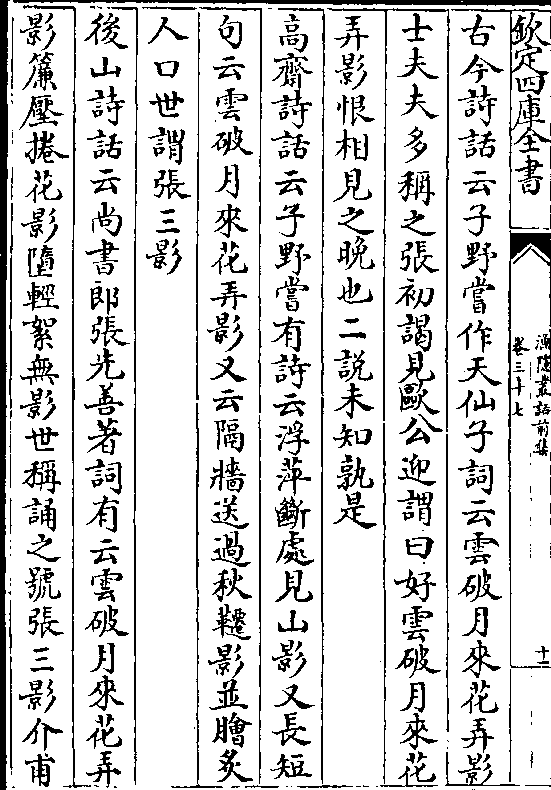 欽定四庫全書
漁隱叢話前集
卷三十七
十一
古今詩話云子野嘗作天仙子詞云雲破月來花弄影
士夫夫多稱之張初謁見歐公迎謂曰好雲破月來花
弄影恨相見之晚也二說未知孰是
高齋詩話云子野嘗有詩云浮萍斷處見山影又長短
句云雲破月來花弄影又云隔牆送過秋韆影並膾炙
人口世謂張三影
後山詩話云尚書郎張先善著詞有云雲破月來花弄
影簾壓捲花影墮輕絮無影世稱誦之號張三影介甫